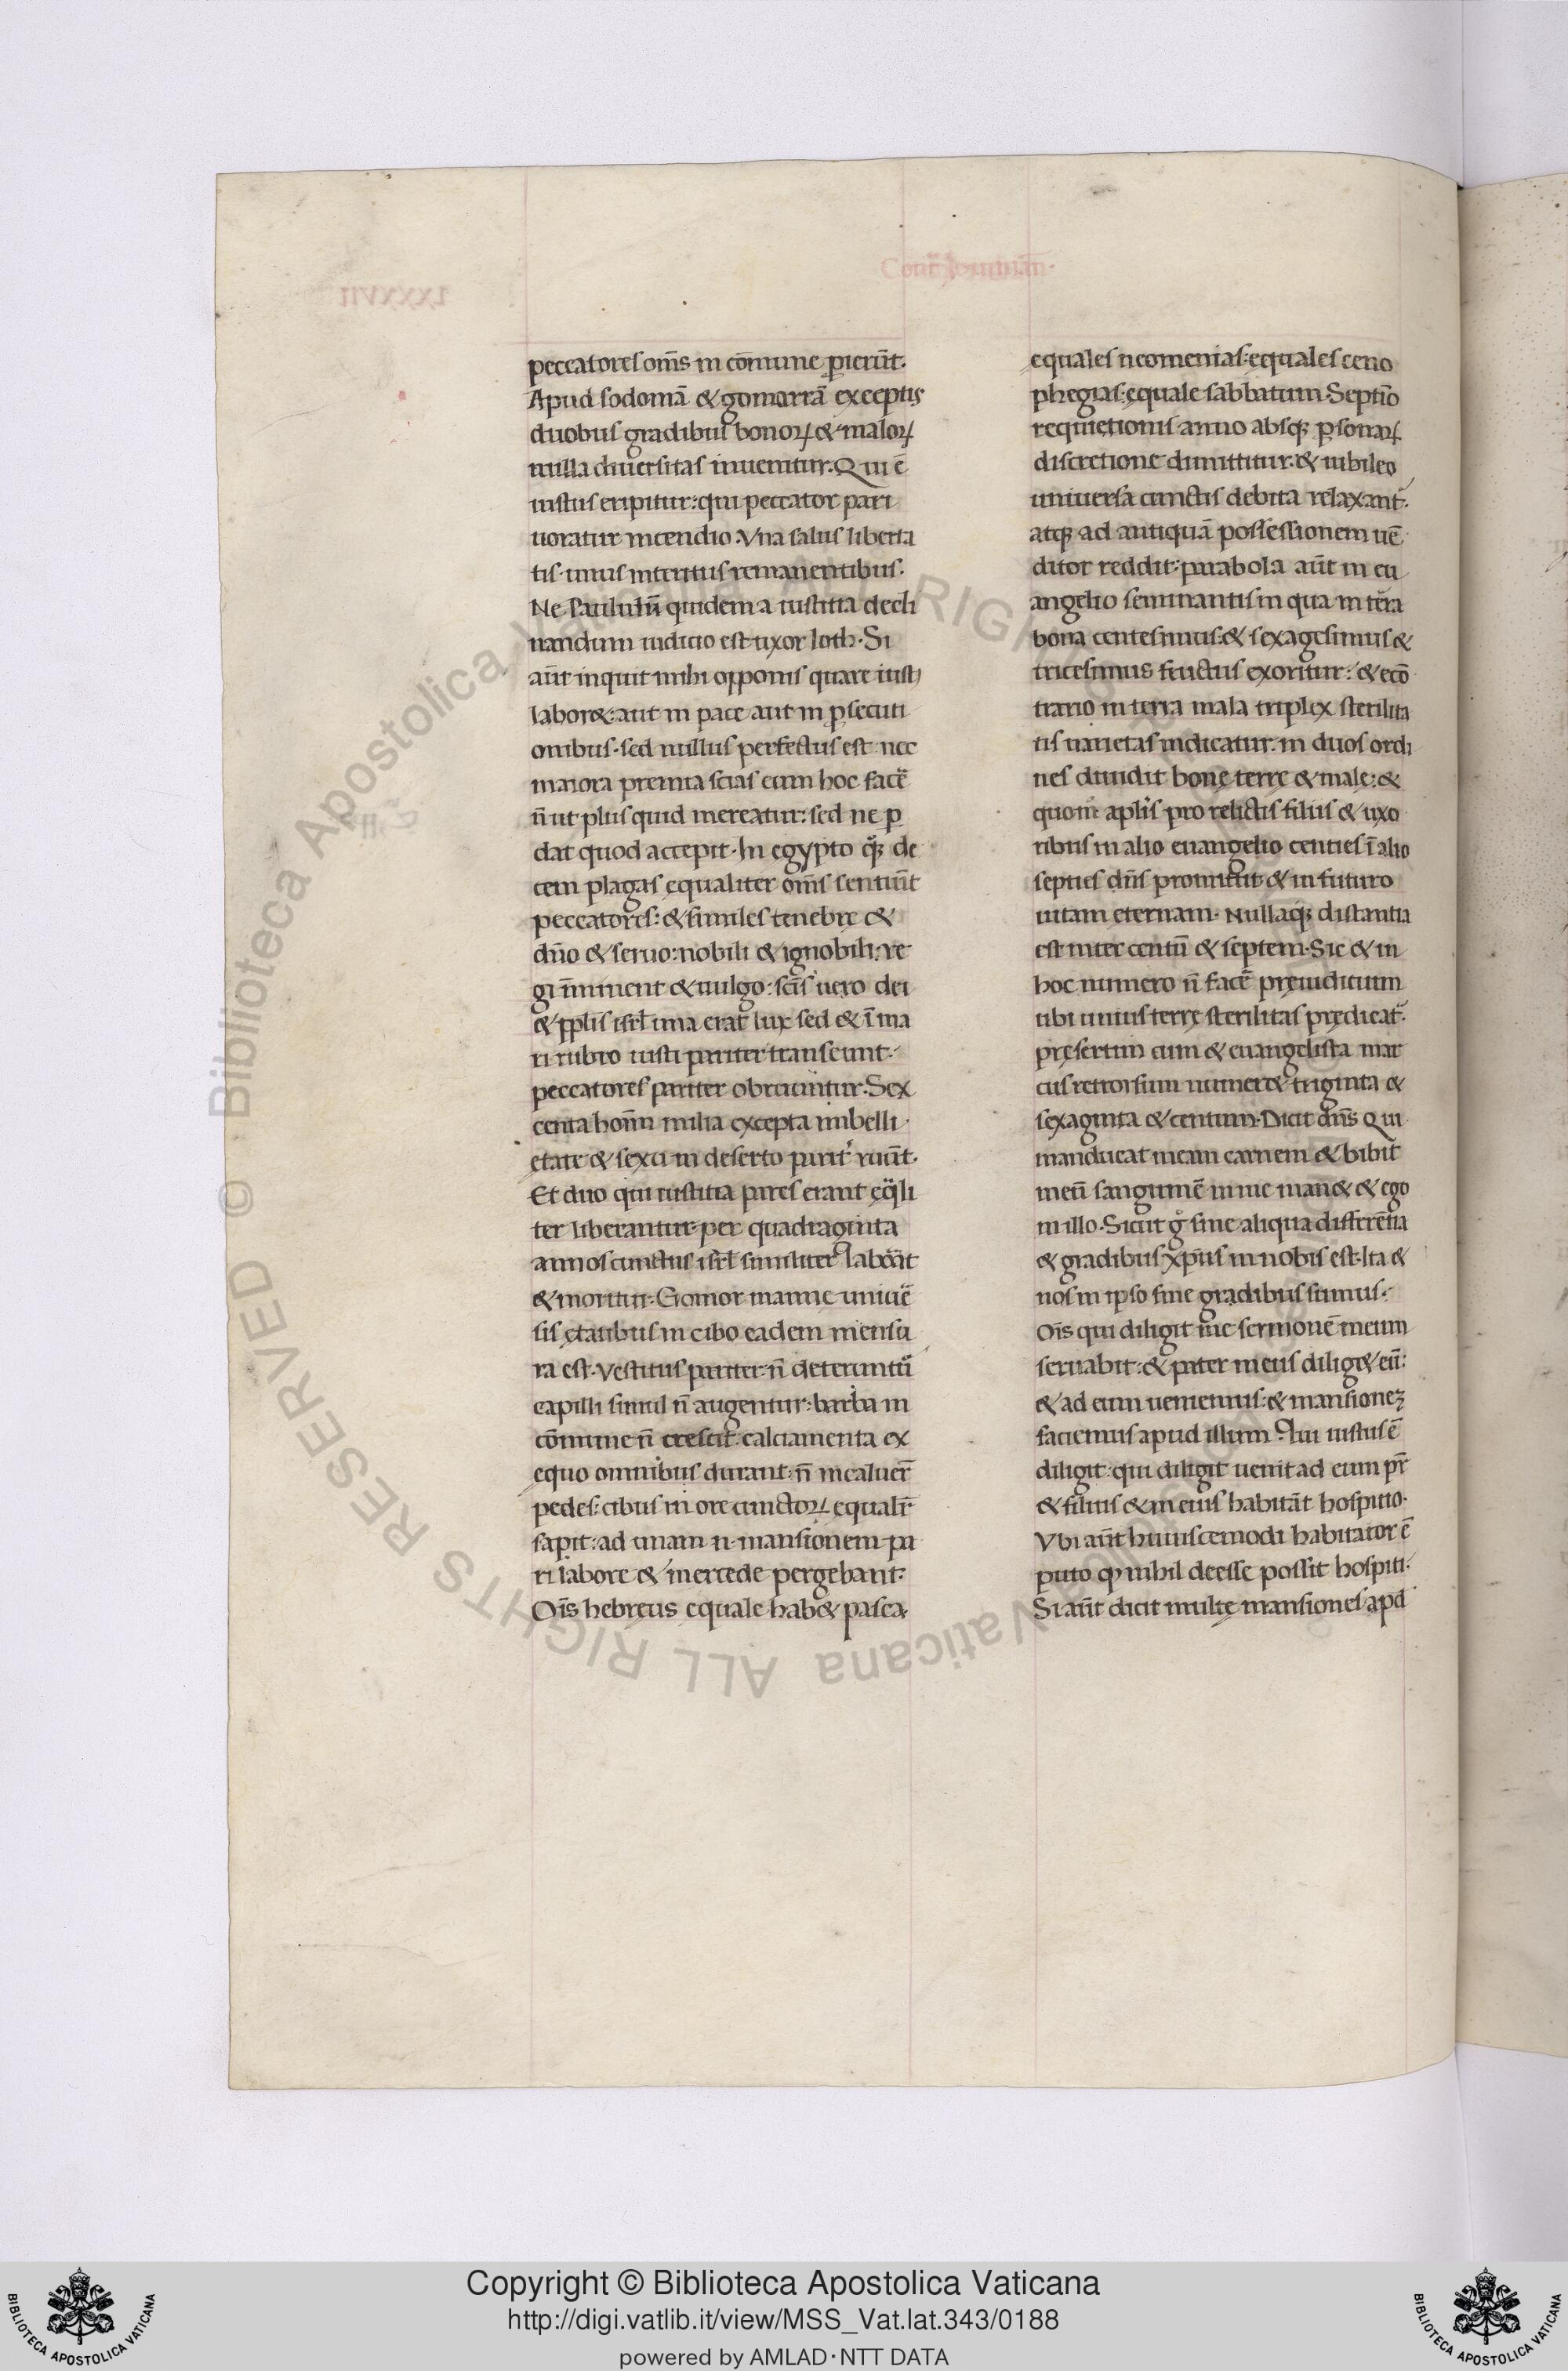 Cont̃ Iouinian̄.
peccatores om̄s in cōmune ꝑierūt.
Apud sodomā & gomorrā exceptis
duobus gradibus bonoꝝ & maloꝝ
nulla diuersitas inuenitur. Qui ē
iustus eripitur: qui peccator pari
uoratur incendio. Vna salus liberta
tis. unus interitus remanentibus.
Ne Paululū quidem a iustitia decli
nandum iudicio est uxor loth. Si
aūt inquit mihi opponis quare iust
labor&: aut in pace aut in ꝑsecuti
onibus. sed nullus perfectus est nec
maiora premia scias eum hoc facẽ
n̄ ut plus quid mereatur: sed ne ꝑ
dat quod accepit. In egypto qꝫ de
cem plagas ęqualiter om̄s sentiūt
peccatores: & similes tenebrę &
dn̄o & seruo: nobili & ignobili: re
gi īminent & uulgo: scīs uero dei
& pp̄lis isrl̄ una erat lux sed & ī ma
ri rubro iusti pariter transeunt.
peccatores pariter obruuntur. Sex
centa hoīm milia excepta imbelli
ętate & sexu in deserto parit̃ ruūt.
Et duo qui iustitia pares erant ęq̃li
ter liberantur. per quadraginta
annos cunctus isrl̄ similiter laborāt
& moritur. Gomor manne uniuẽ
sis ętatibus in cibo eadem mensu
ra est. Vestitus pariter n̄ deteruntũ
capilli simul n̄ augentur: barba in
cōmune n̄ crescit. calciamenta ex
ęquo omnibus durant. n̄ incaluer̄
pedes: cibus in ore cunctoꝝ equalit̃
sapit: ad unam n. mansionem pa
ri labore & mercede pergebant.
Oīs hebręus equale hab& pasca.
equales neomenias: equales ceno
phegias: ęquale sabbatum. Septīo
requietionis anno absqꝫ ꝑsonaꝝ
discretione dimittitur. & iubileo
uniuersa cunctis debita relaxant̃.
atqꝫ ad antiquā possessionem uē
ditor reddit. parabola aūt in eu
angelio seminantis in qua in tẽra
bona centesimus. & sexagesimus &
tricesimus fructus exoritur: & ecō
trario in terra mala triplex sterilita
tis uarietas indicatur. in duos ordi
nes diuidit bonę terrę & malę: &
quom̃ aplīs pro relictis filiis & uxo
ribus in alio euangelio centies ī alio
septies dn̄s promittit & in futuro
uitam eternam. Nullaqꝫ distantia
est inter centū & septem. Sic & in
hoc numero n̄ facẽ pręiuditium
ubi unius terrę sterilitas prędicat̃.
pręsertim cum & euangelista mar
cus retrorsum numer& triginta &
sexaginta & centum. Dicit dn̄s Qui
manducat meam carnem & bibit
meū sanguinē in me man& & ego
in illo. Sicut g̊ sine aliqua differētia
& gradibus xp̄us in nobis est. Ita &
nos in ipso sine gradibus sumus.
Oīs qui diligit me sermonē meum
seruabit: & pater meus dilig& eū:
& ad eum ueniemus: & mansioneꝫ
faciemus apud illum. Qui iustus ē
diligit: qui diligit uenit ad eum pr̄
& filius & in eius habitāt hospitio.
Vbi aūt huiuscemodi habitator ē
puto ꝙ nihil deesse possit hospiti.
Si aūt dicit multę mansiones apd
Copyright © Biblioteca Apostolica Vaticana
http://digi.vatlib.it/view/MSS_Vat.lat.343/0188
powered by AMLAD·NTT DATA
BIBLIOTECA APOSTOLICA VATICANA
BIBLIOTECA APOSTOLICA VATICANA
© Biblioteca Apostolica Vaticana ALL RIGHTS RESERVED